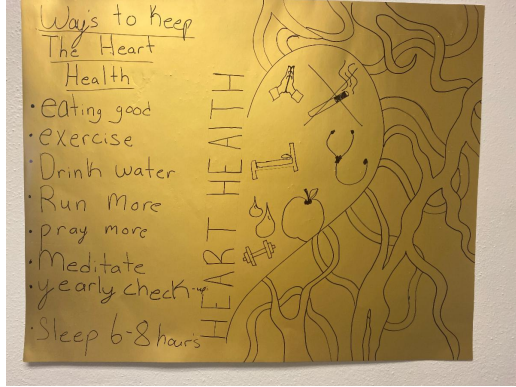 Ways to Keep
The Heart
Health
• eating good
• exercise
• Drink water
• Run More
• pray more
• Meditate
• yearly check-up
• Sleep 6-8 hours
HEART HEALTH